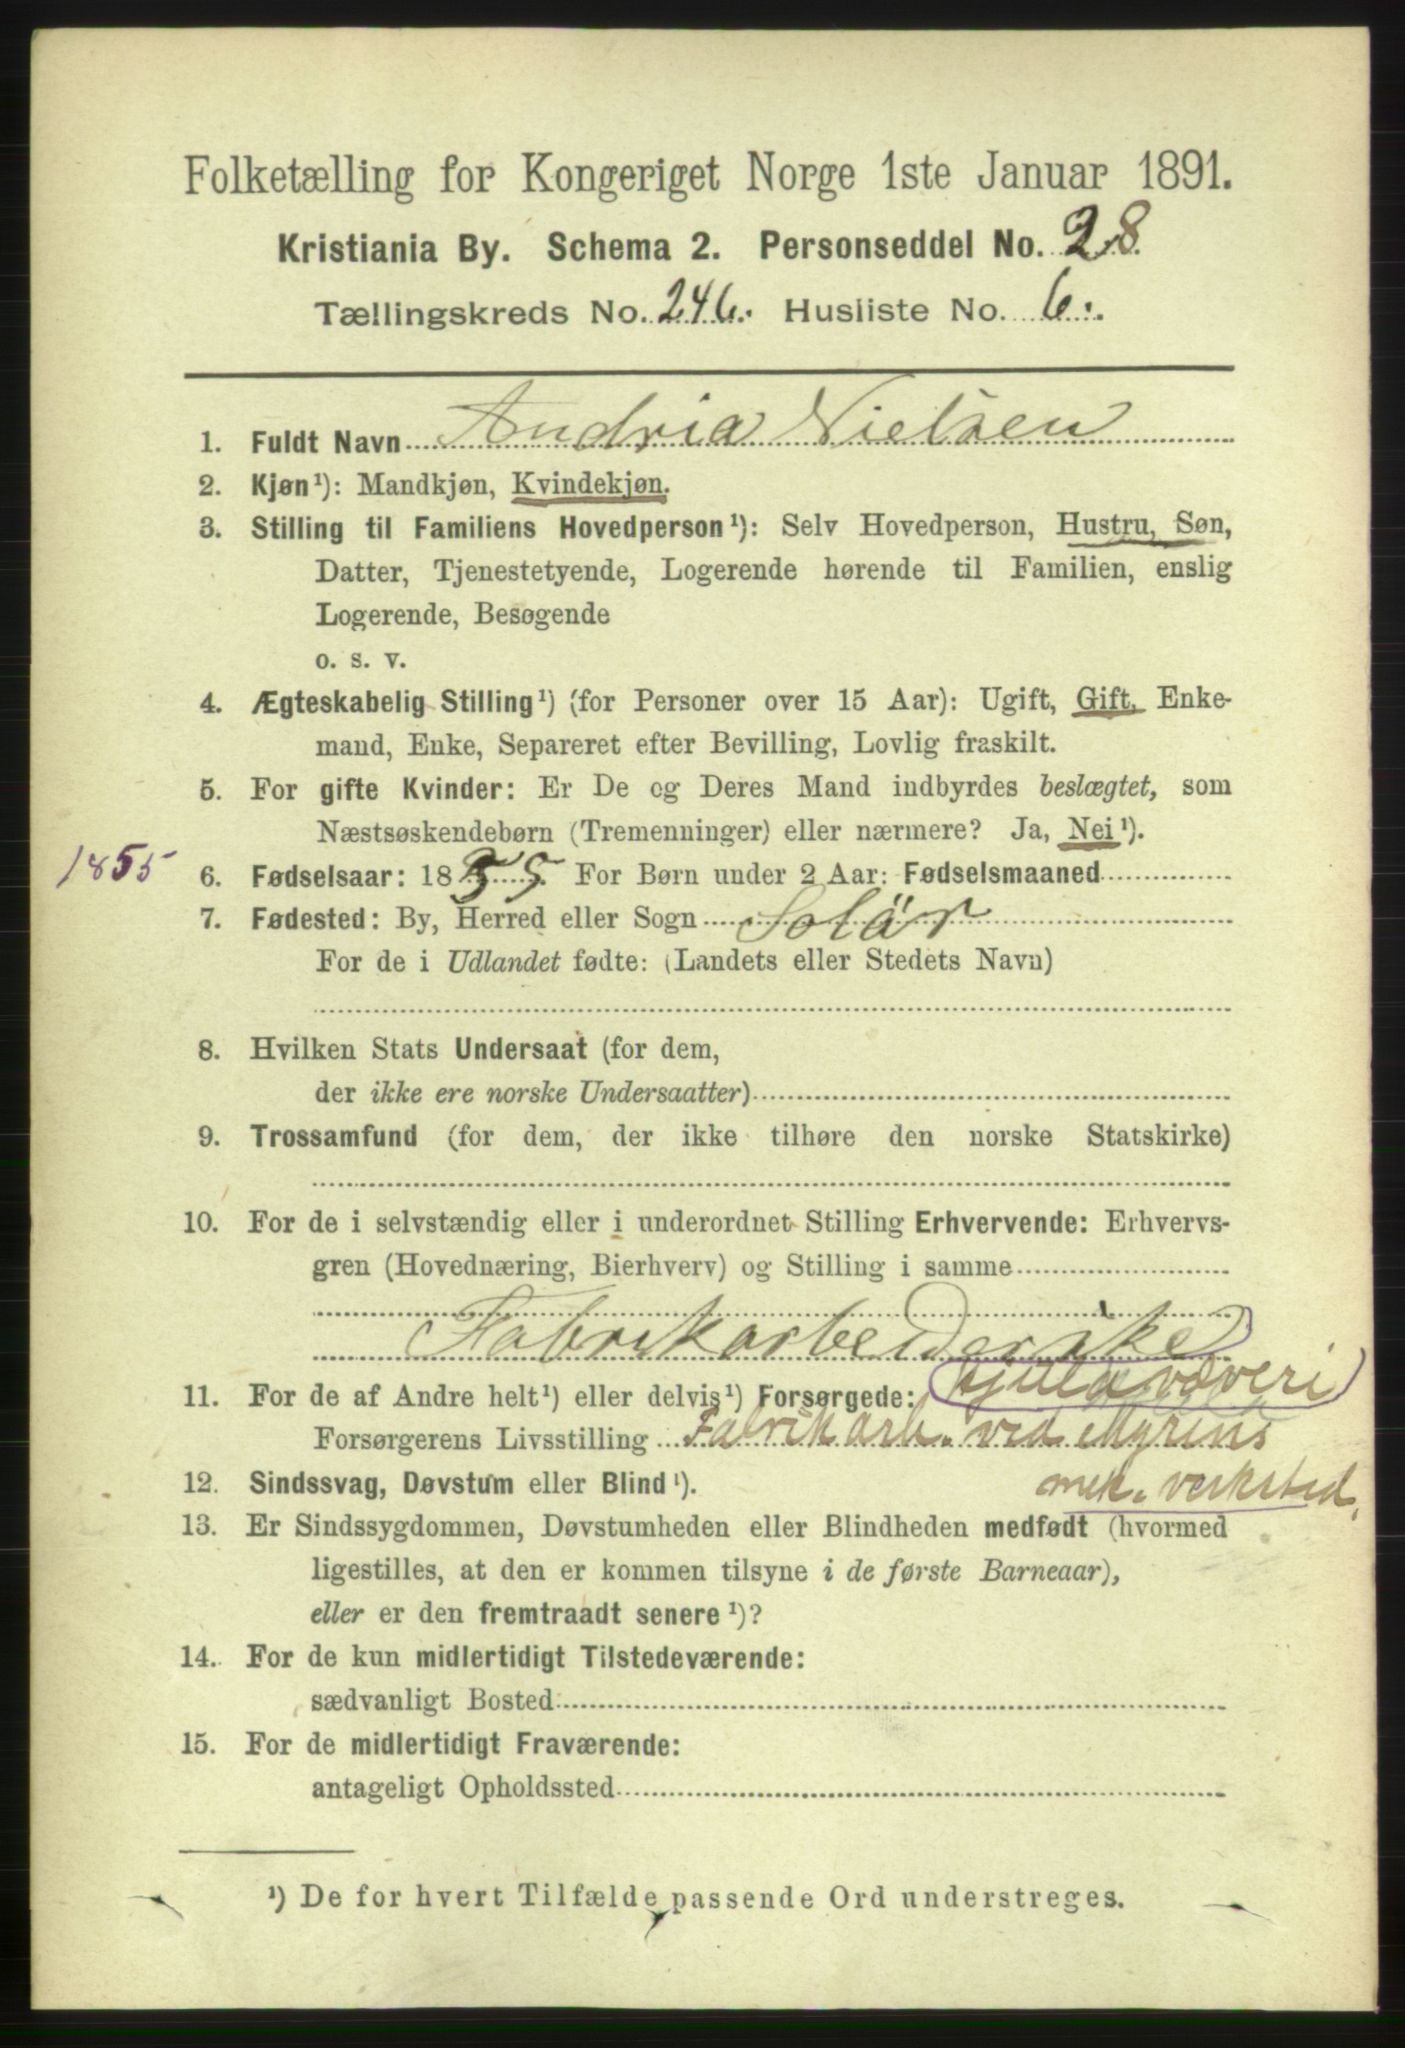 Folketælling for Kongeriget Norge 1ste Januar 1891.
Kristiania By. Schema 2. Personseddel No. 28.
Tællingskreds No. 246. Husliste No. 6.
1. Fuldt Navn Andria Nielsen
2. Kjøn¹): Mandkjøn, Kvindekjøn.
3. Stilling til Familiens Hovedperson¹): Selv Hovedperson, Hustru, Søn,
Datter, Tjenestetyende, Logerende hørende til Familien, enslig
Logerende, Besøgende
o. s. v.
4. Ægteskabelig Stilling¹) (for Personer over 15 Aar): Ugift, Gift, Enke-
mand, Enke, Separeret efter Bevilling, Lovlig fraskilt.
5. For gifte Kvinder: Er De og Deres Mand indbyrdes beslægtet, som
Næstsøskendebørn (Tremenninger) eller nærmere? Ja, Nei¹).
1855
6. Fødselsaar: 1855. For Børn under 2 Aar: Fødselsmaaned
7. Fødested: By, Herred eller Sogn Solör
For de i Udlandet fødte: (Landets eller Stedets Navn)
8. Hvilken Stats Undersaat (for dem,
der ikke ere norske Undersaatter)
9. Trossamfund (for dem, der ikke tilhøre den norske Statskirke)
10. For de i selvstændig eller i underordnet Stilling Erhvervende: Erhvervs-
gren (Hovednæring, Bierhverv) og Stilling i samme
Fabrikarbeiderske
Hjula væveri
11. For de af Andre helt¹) eller delvis¹) Forsørgede:
Forsørgerens Livsstilling Fabrikarb. ved Myrens
mek. verksted.
12. Sindssvag, Døvstum eller Blind¹).
13. Er Sindssygdommen, Døvstumheden eller Blindheden medfødt (hvormed
ligestilles, at den er kommen tilsyne i de første Barneaar),
eller er den fremtraadt senere¹)?
14. For de kun midlertidigt Tilstedeværende:
sædvanligt Bosted
15. For de midlertidigt Fraværende:
antageligt Opholdssted
¹) De for hvert Tilfælde passende Ord understreges.